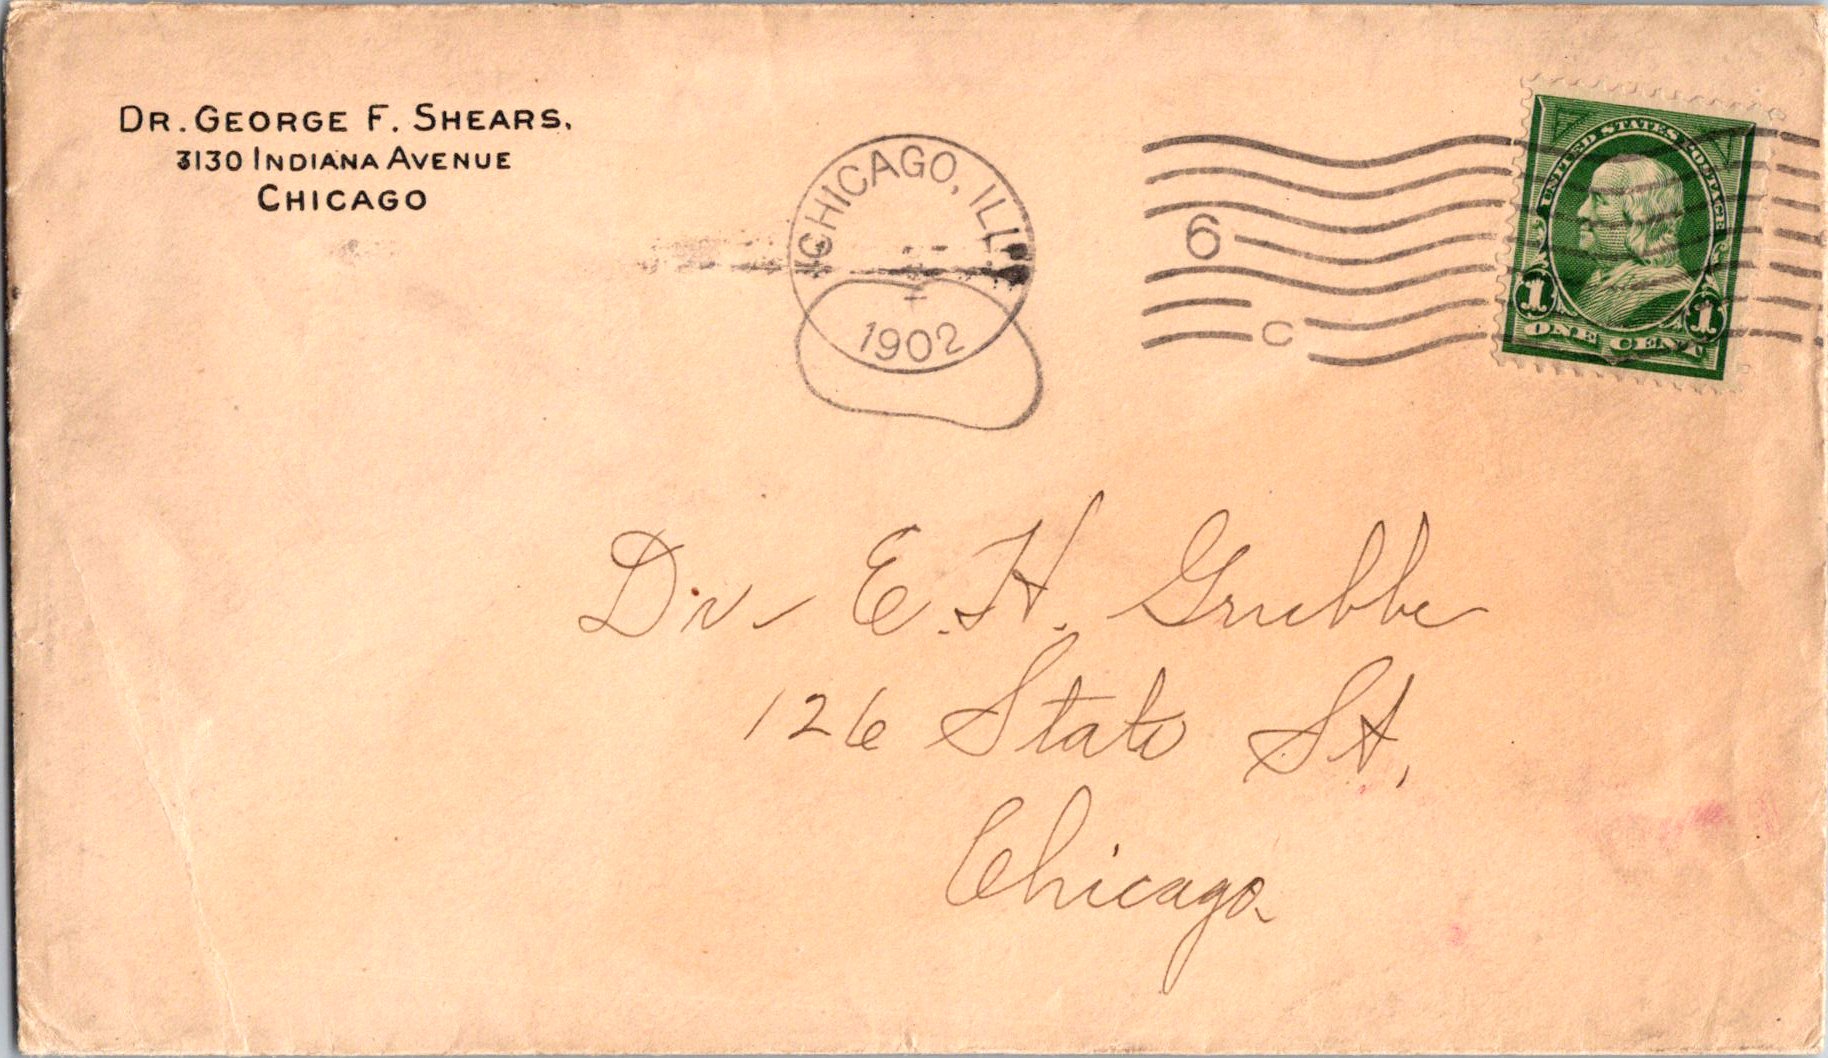 DR. GEORGE F. SHEARS,
3130 INDIANA AVENUE
CHICAGO
CHICAGO, ILL.
1902
6
C
UNITED STATES POSTAGE
1 1
ONE CENT
Dr. E. H. Grubbe
126 State St,
Chicago